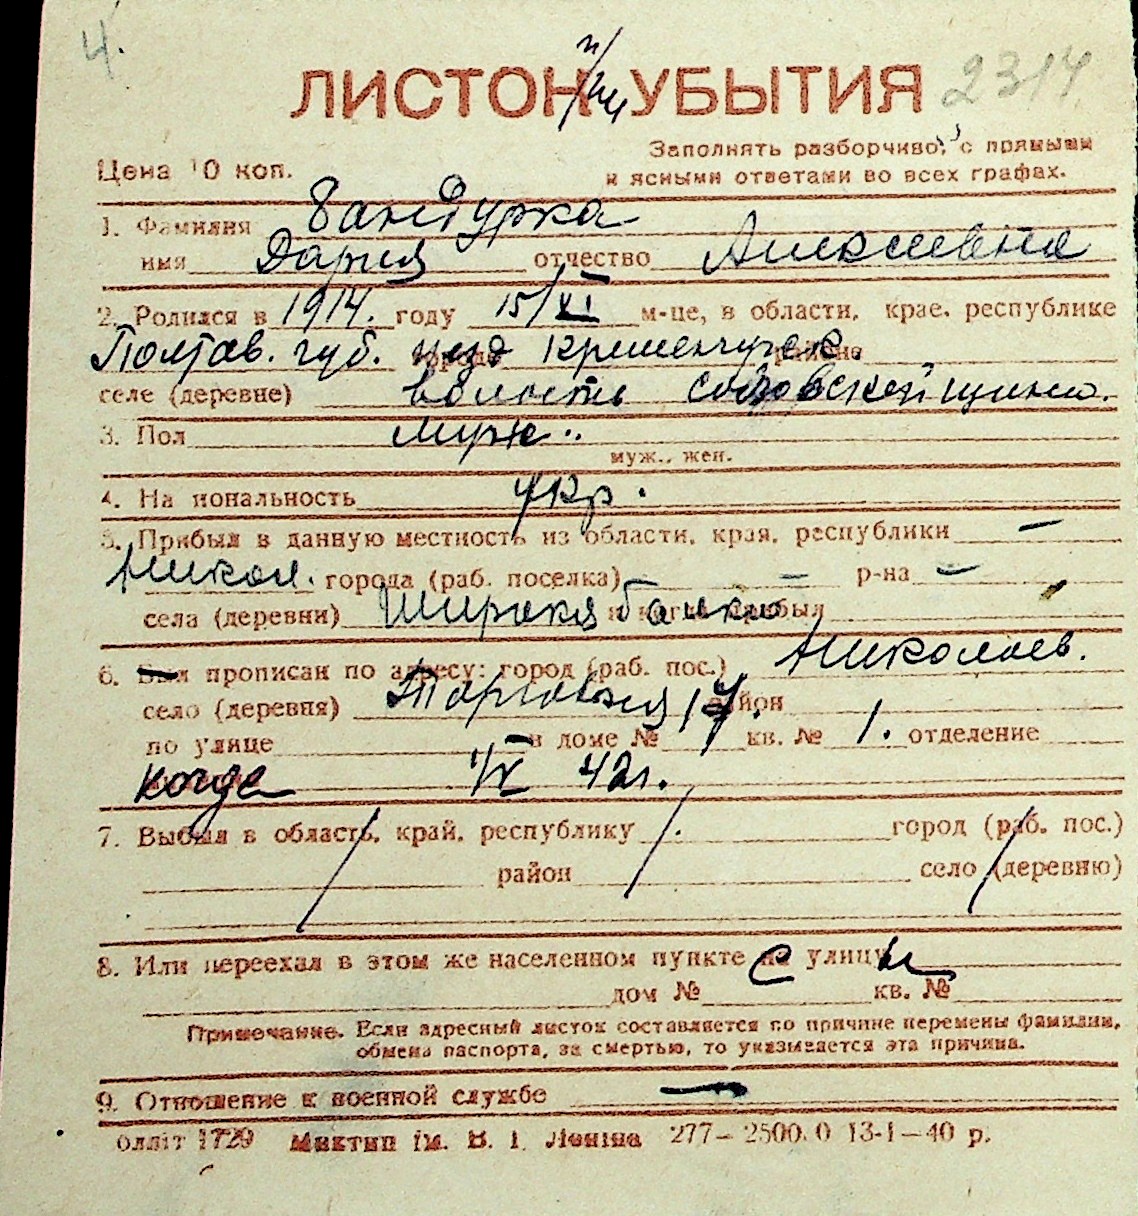 4.
ЛИСТОК УБЫТИЯ 2314
Заполнять разборчиво, с прямыми
Цена 10 коп. и ясными ответами во всех графах.
1. Фамилия Бандурка
имя Дария отчество Алексеевна
2. Родился в 1914. году 15/XI м-це, в области, крае, республике
Полтав. губ. города Кременчугск. районе
селе (деревне) волость
3. Пол
муж., жен.
4. Национальность укр.
5. Прибыл в данную местность из области, края, республики —
Никол. города (раб. поселка) — — р-на —
села (деревни) Широкая балка и когда прибыл
6. Был прописан по адресу: город (раб. пос.) Николаев.
село (деревня) Торговая 17. район
по улице в доме № кв. № 1. отделение
когда 1/X 42г.
7. Выбыл в область, край, республику город (раб. пос.)
район село (деревню)
8. Или переехал в этом же населенном пункте с улицы
дом № кв. №
Примечание. Если адресный листок составляется по причине перемены фамилии,
обмена паспорта, за смертью, то указывается эта причина.
9. Отношение к военной службе —
оплліт 1729 Миктип ім. В. І. Леніна 277–2500.0 13-I–40 р.